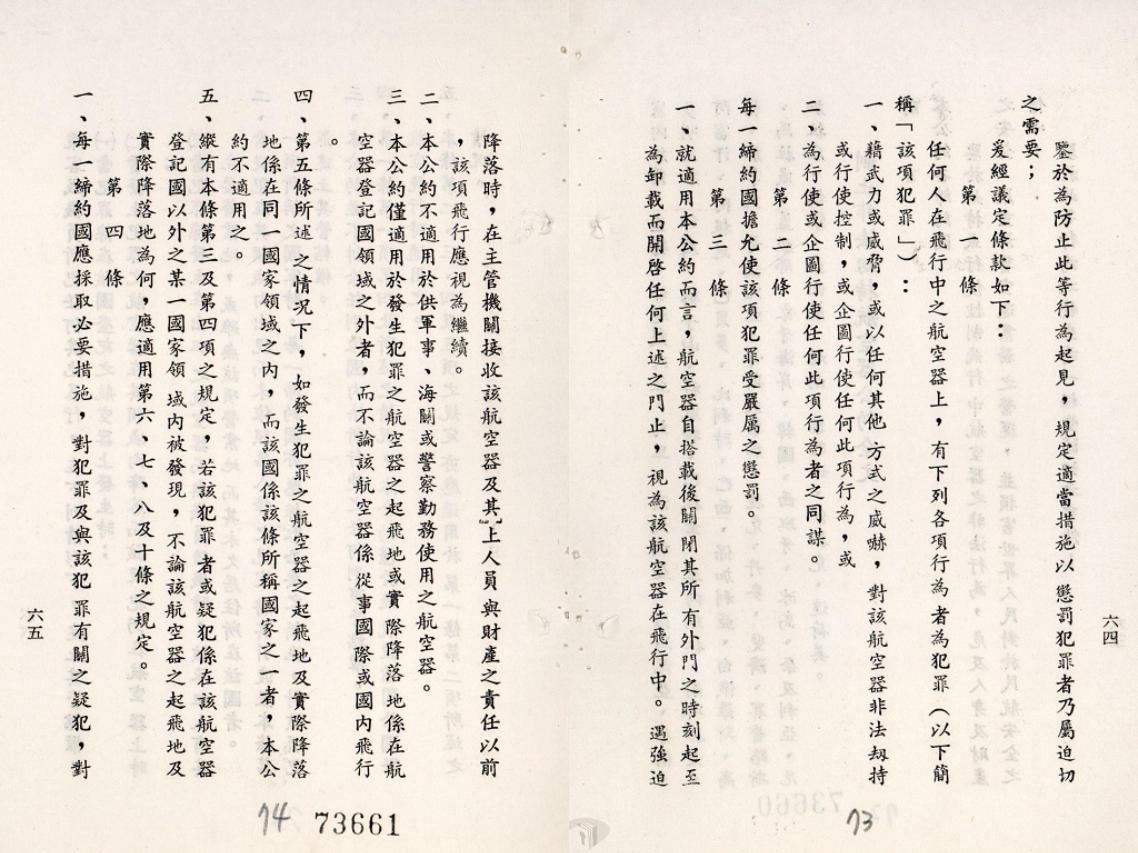 鑒於為防止此等行為起見，規定適當措施以懲罰犯罪者乃屬迫切
之需要；
爰經議定條款如下：
第一條
任何人在飛行中之航空器上，有下列各項行為者為犯罪（以下簡
稱「該項犯罪」）：
一、藉武力或威脅，或以任何其他方式之威嚇，對該航空器非法刼持
或行使控制，或企圖行使任何此項行為，或
二、為行使或企圖行使任何此項行為者之同謀。
第二條
每一締約國擔允使該項犯罪受嚴厲之懲罰。
第三條
一、就適用本公約而言，航空器自搭載後關閉其所有外門之時刻起至
為卸載而開啓任何上述之門止，視為該航空器在飛行中。遇強迫
六四
73
降落時，在主管機關接收該航空器及其上人員與財產之責任以前
，該項飛行應視為繼續。
二、本公約不適用於供軍事、海關或警察勤務使用之航空器。
三、本公約僅適用於發生犯罪之航空器之起飛地或實際降落地係在航
空器登記國領域之外者，而不論該航空器係從事國際或國內飛行
。
四、第五條所述之情況下，如發生犯罪之航空器之起飛地及實際降落
地係在同一國家領域之內，而該國係該條所稱國家之一者，本公
約不適用之。
五、縱有本條第三及第四項之規定，若該犯罪者或疑犯係在該航空器
登記國以外之某一國家領域內被發現，不論該航空器之起飛地及
實際降落地為何，應適用第六、七、八及十條之規定。
第四條
一、每一締約國應採取必要措施，對犯罪及與該犯罪有關之疑犯，對
六五
74
73661